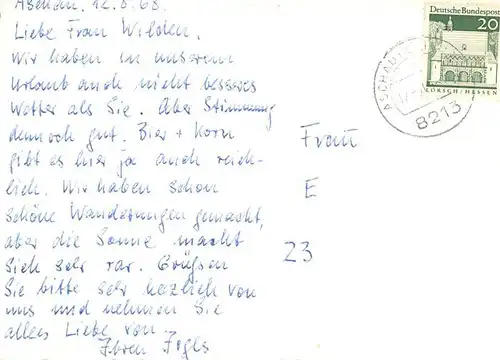 Aschau. 12.8.68.
Liebe Frau Wilden.
Wir haben in unserem
Urlaub auch nicht besseres
Wetter als Sie. Aber Stimmung
dennoch gut. Bier + Korn
gibt es hier ja auch reich-
lich. Wir haben schon
schöne Wanderungen gemacht,
aber die Sonne macht
sich sehr rar. Grüßen
Sie bitte sehr herzlich von
uns und nehmen Sie
alles Liebe von
Ihren
Frau
E
23
Deutsche Bundespost
20
LORSCH/HESSEN
ASCHAU
8213